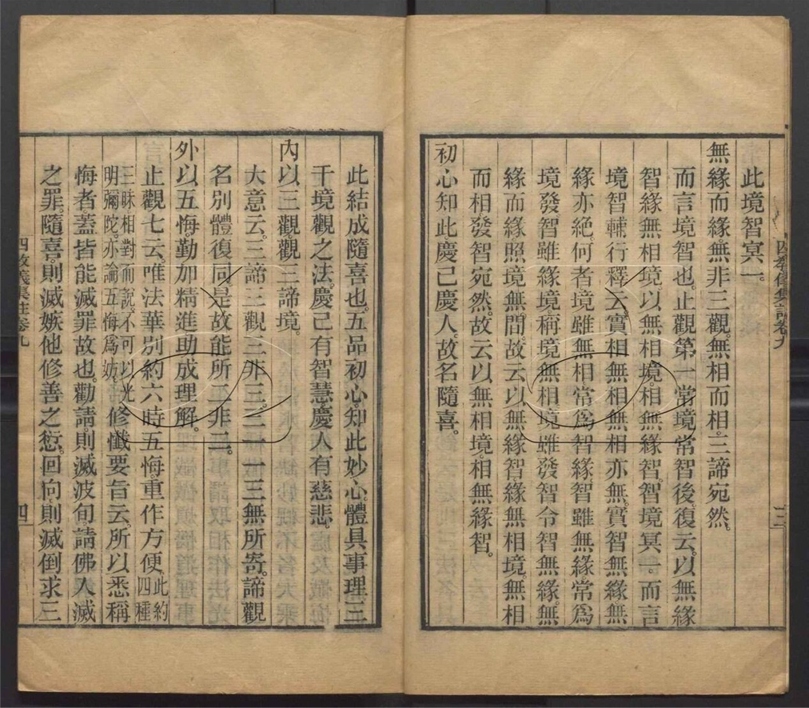 此境智冥一。
無緣而緣無非三觀。無相而相。三諦宛然。
而言境智也。止觀第一常境常智後復云。以無緣
智緣無相境。以無相境相無緣智。智境冥一。而言
境智。輔行釋云。實相無相。無相亦無。實智無緣。無
緣亦絕。何者。境雖無相。常爲智緣。智雖無緣。常爲
境發。智雖緣境。稱境無相。境雖發智。令智無緣。無
緣而緣。照境無間。故云以無緣智緣無相境。無相
而相。發智宛然。故云以無相境相無緣智。
初心知此慶己慶人。故名隨喜。
四教儀集註卷九
三
此結成隨喜也。五品初心。知此妙心體具事理三
千境觀之法。慶己有智慧。慶人有慈悲。
內以三觀觀三諦境。
大意云。三諦三觀。三非三。三一一三無所寄。諦觀
名別體復同。是故能所二非二。
外以五悔勤加精進助成理解。
止觀七云。唯法華別約六時五悔重作方便。此約四種
三昧相對而說。不可以光明彌陀亦論五悔爲妨。修懺要旨云。所以悉稱
悔者。蓋皆能滅罪故也。勸請則滅波旬請佛入滅
之罪。隨喜則滅嫉他修善之愆。回向則滅倒求三
四教儀集註卷九
四